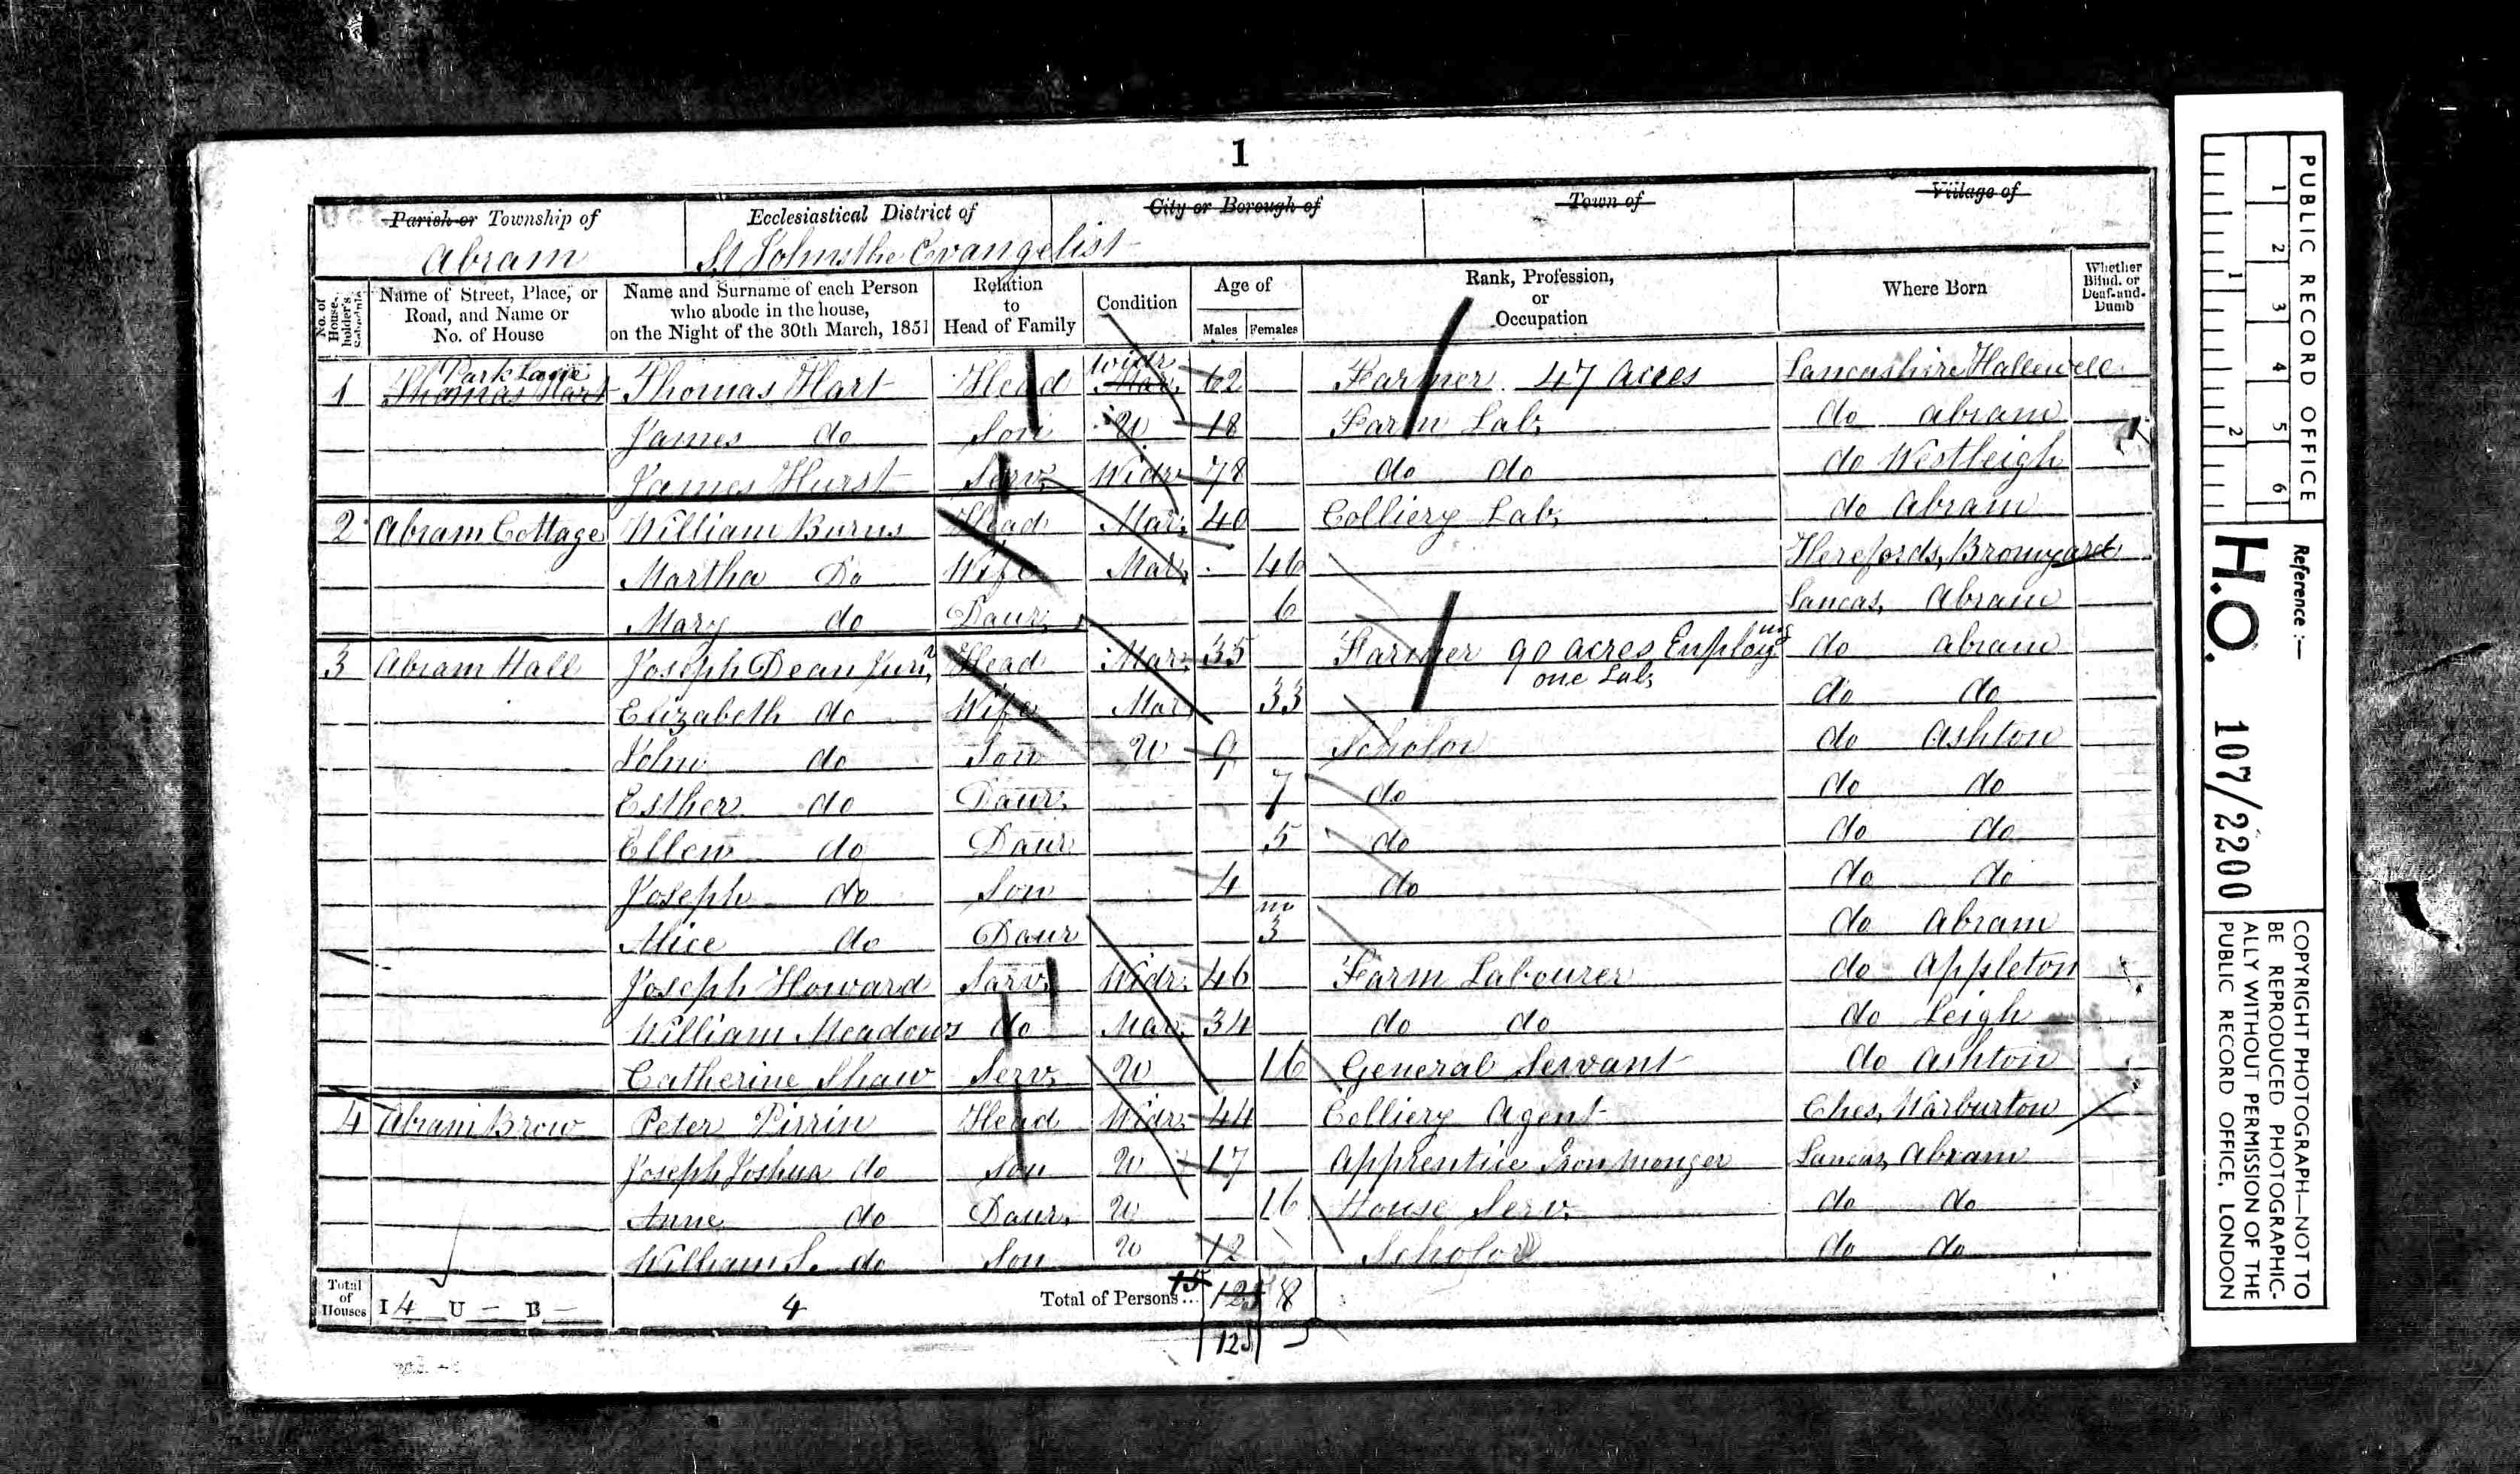 1
Parish or Township of
Ecclesiastical District of
City or Borough of
Town of
Village of
Abram
St Johns the Evangelist
No. of House-holder's Schedule
Name of Street, Place, or Road, and Name or No. of House
Name and Surname of each Person who abode in the house, on the Night of the 30th March, 1851
Relation to Head of Family
Condition
Age of
Males
Females
Rank, Profession, or Occupation
Where Born
Whether Blind, or Deaf-and-Dumb
Park Lane
1 Thomas Hart Thomas Hart Head Widr Mar. 62 Farmer 47 Acres Lancashire Hallewell
James do Son U 18 Farm Lab. do Abram
James Hurst Serv. Widr. 78 do do do Westleigh
2 Abram Cottage William Burns Head Mar. 40 Colliery Lab. do Abram
Martha Do Wife Mar. 46 Herefords, Bromyard
Mary do Daur. 6 Lancas. Abram
3 Abram Hall Joseph Dean Junr. Head Mar. 35 Farmer 90 acres Employing one Lab. do Abram
Elizabeth do Wife Mar. 33 do do
John do Son U 9 Scholor do Ashton
Esther do Daur. 7 do do do
Ellen do Daur. 5 do do do
Joseph do Son 4 do do do
Alice do Daur 3 m do Abram
Joseph Howard Sarv. Widr. 46 Farm Labourer do Appleton
William Meadows do Mar. 34 do do do Leigh
Catherine Shaw Serv. U 16 General Servant do Ashton
4 Abram Brow Peter Pirrin Head Widr. 44 Colliery Agent Ches, Warburton
Joseph Joshua do Son U 17 Apprentice Iron Monger Lancas, Abram
Anne do Daur. U 16 House Serv. do do
William S. do Son U 12 Scholor do do
Total of Houses I 4 U – B – 4 Total of Persons... 15 12 8
12
PUBLIC RECORD OFFICE
1 2 3 4 5 6
1 2
Reference :—
H.O. 107/2200
COPYRIGHT PHOTOGRAPH—NOT TO BE REPRODUCED PHOTOGRAPHIC-
ALLY WITHOUT PERMISSION OF THE
PUBLIC RECORD OFFICE, LONDON